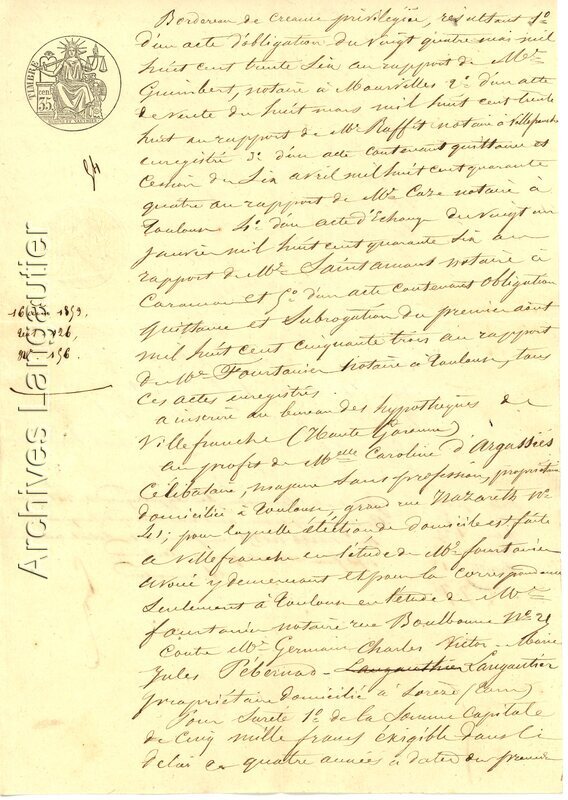 Bordereau de créance privilégiée, résultant 1º
d'un acte d'obligation du vingt quatre mai mil
huit cent trente six au rapport de Me
Guimbert, notaire à Mourvilles 2º d'un acte
de vente du huit mars mil huit cent trente
huit au rapport de Me Raffit notaire à Villefranche
enregistré 3º d'un acte contenant quittance et
cession du six avril mil huit cent quarante
quatre au rapport de Me Caze notaire à
Toulouse 4º d'un acte d'Echange du vingt un
janvier mil huit cent quarante six au
rapport de Me Saint amans notaire à
Caraman et 5º d'un acte contenant obligation
quittance et subrogation du premier août
mil huit cent cinquante trois au rapport
de Me Fourtanier notaire à Toulouse, tous
ces actes enregistrés.
a inscrire au bureau des hypothèques de
Villefranche (Haute Garonne)
au profit de Melle Caroline d'Argassiés
Célibataire, majeure sans profession, propriétaire
domiciliée à Toulouse, grand rue Nazareth Nº
41; pour laquelle élection de domicile est faite
a Villefranche en l'étude de Me fourtanier
avoué y demeurant et pour la correspondance
seulement à Toulouse en l'étude de Me
fourtanier notaire rue Boulbonne Nº 21
Contre Mr Germain Charles Victor-Marie
Jules Pébernad Langauthier Langautier
propriétaire domicilié à Sorèze (Tarn)
Pour Sureté 1º de la Somme Capitale
de Cinq mille francs exigible dans le
délai de quatre années à dater du premier
TIMBRE
35 cen.
1853,
126,
156.
Archives Langautier